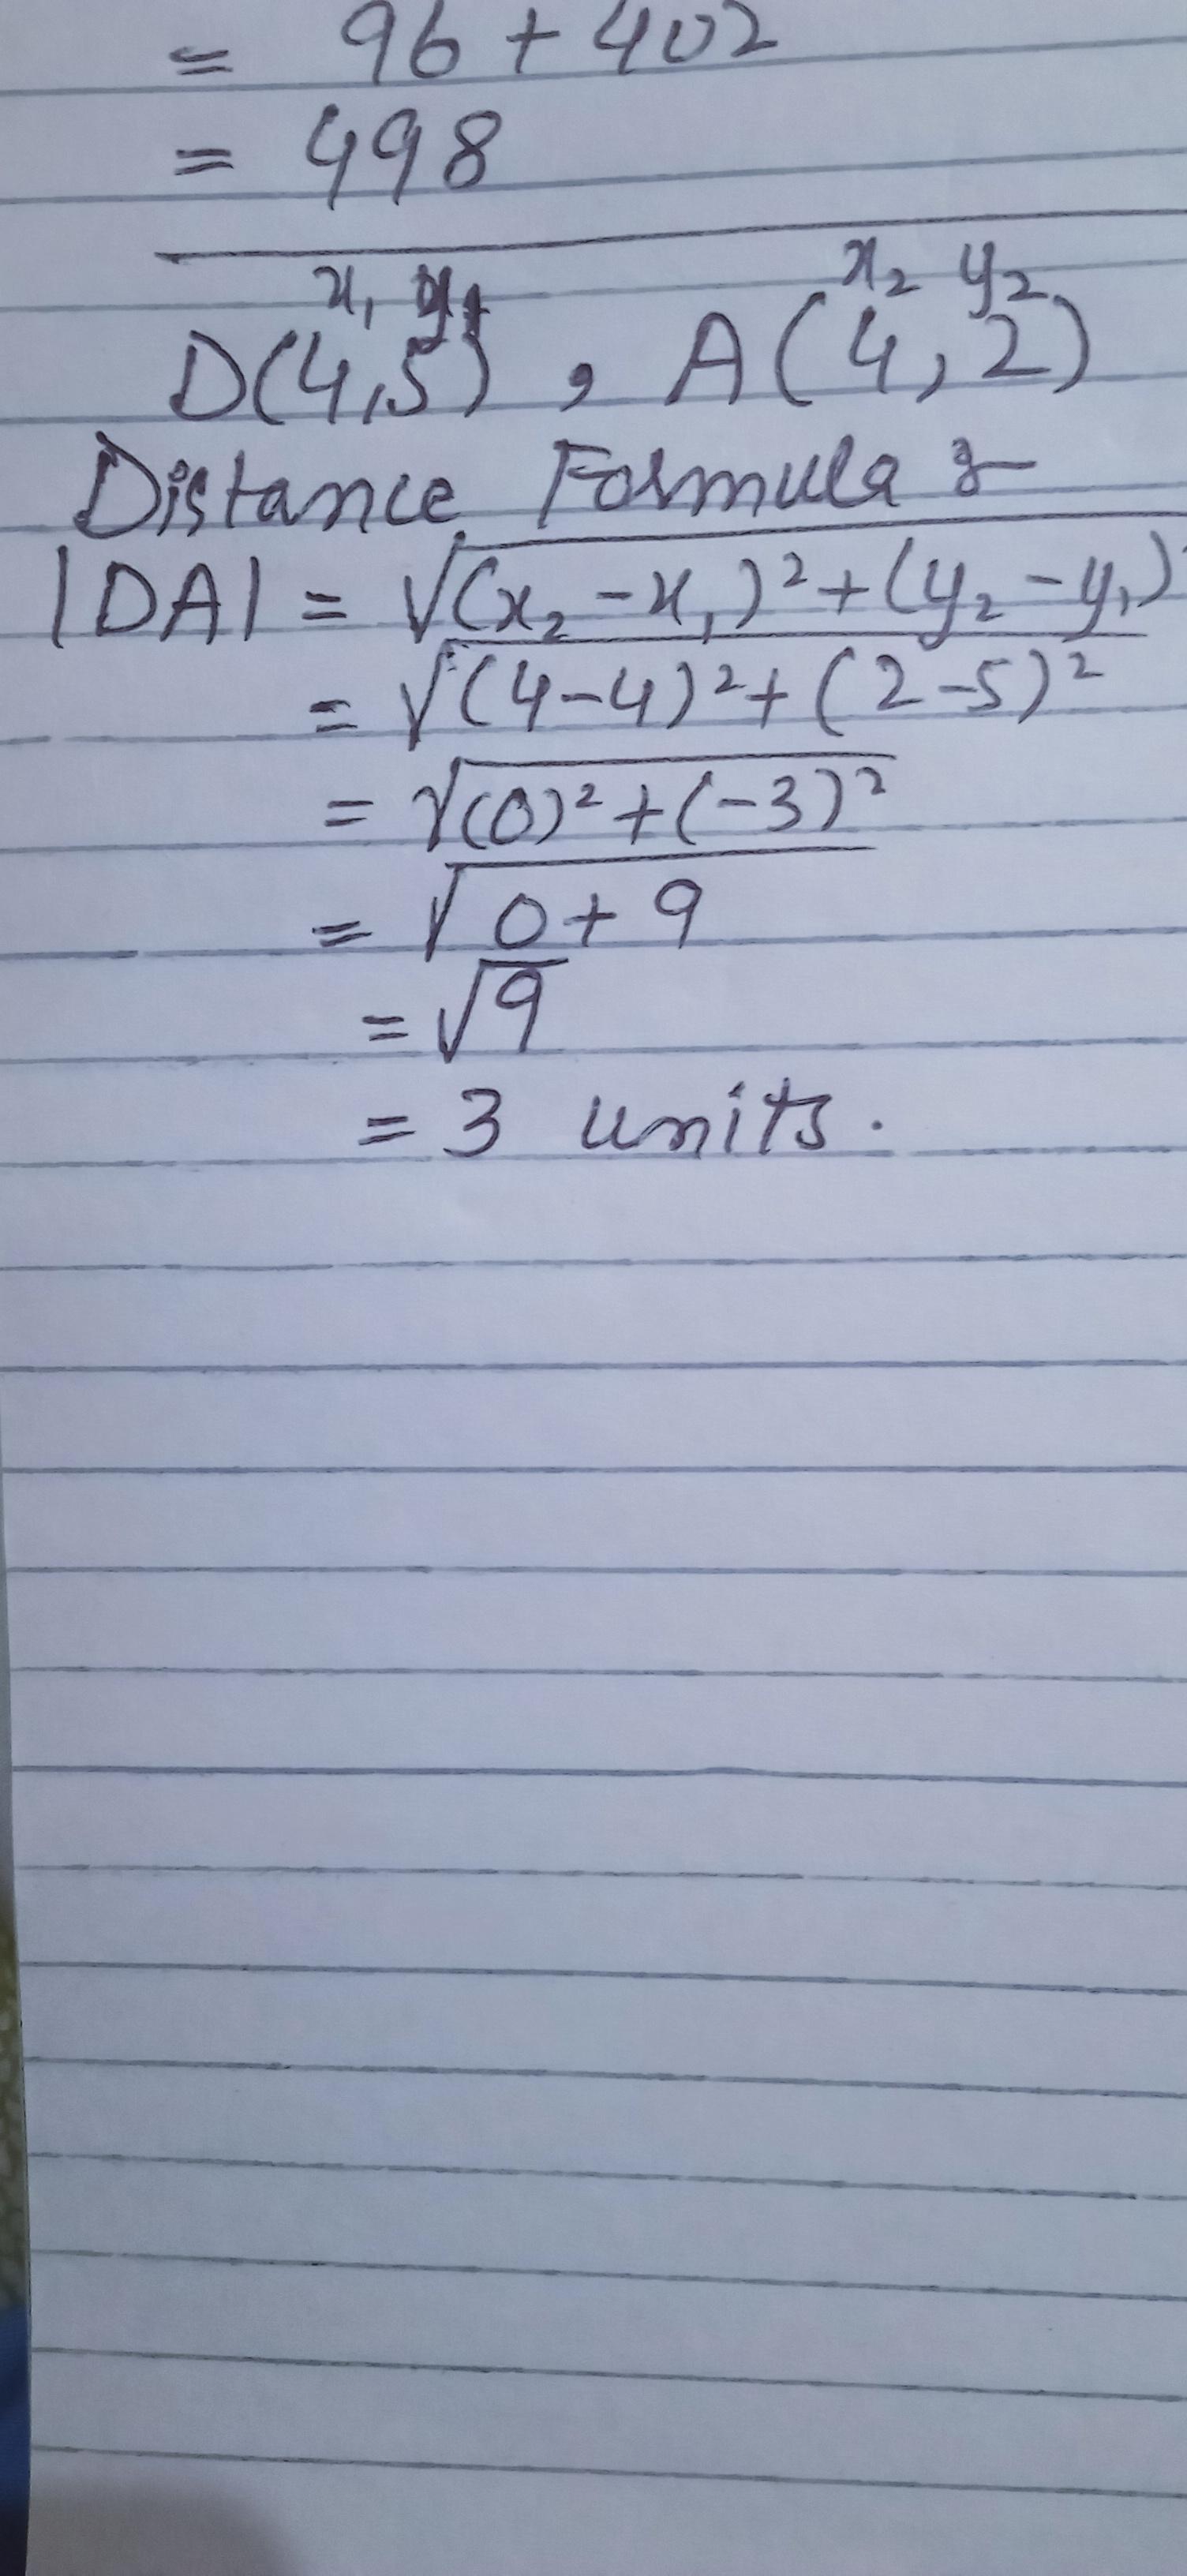 = 96 + 402
= 498
x₁ y₁ x₂ y₂
D(4,5) , A(4,2)
Distance Formula :-
|DA| = √(x₂-x₁)²+(y₂-y₁)²
= √(4-4)²+(2-5)²
= √(0)²+(-3)²
= √0+9
= √9
= 3 units.